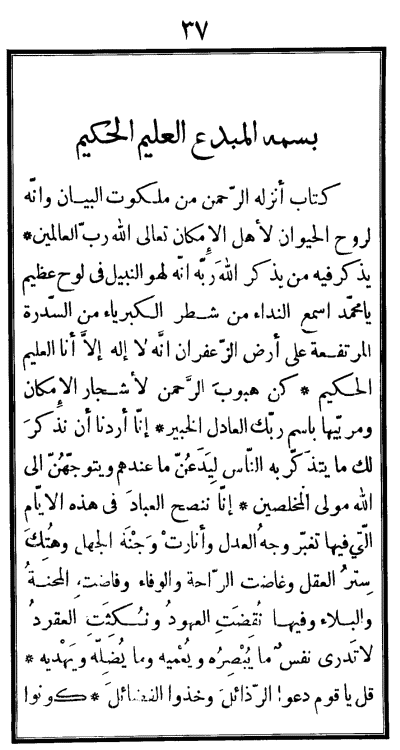 ٣٧
بسمه المبدع العليم الحكيم
كتاب أنزله الرّحمن من ملكوت البيان وانّه
لروح الحيوان لأهل الإمكان تعالى الله ربّ العالمين*
يذكر فيه من يذكر اللهَ ربّه انّه لهو النبيل فى لوح عظيم
يا محمّد اسمع النداء من شطر الكبرياء من السّدرة
المرتفعة على أرض الزّعفران انّه لا إله إلاَّ أنا العليم
الحكيم * كن هبوبَ الرَّحمن لأشجار الإمكان
ومربّيها باسم ربّك العادل الخبير* إنّا أردنا أن نذكرَ
لك ما يتذكّر به النّاس ليَدَعُنّ ما عندهم ويتوجّهُنّ الى
الله مولى المخلصين * إنّا ننصح العبادَ فى هذه الايّام
الّتي فيها تغبّر وجه العدل وأنارتْ وَجْنَة الجهل وهُتِكَ
سِترُ العقل وغاضت الرّاحة والوفاء وفاضت المحنةُ
والبلاء وفيها نُقِضَتِ العهودُ ونُكِثَتِ العقودُ
لا تَدرى نفسٌ ما يُبْصِرُه ويُعْميه وما يُضِلّه ويَهْديه *
قل يا قوم دعوا الرّذائلَ وخذوا الفضائلَ * كونوا